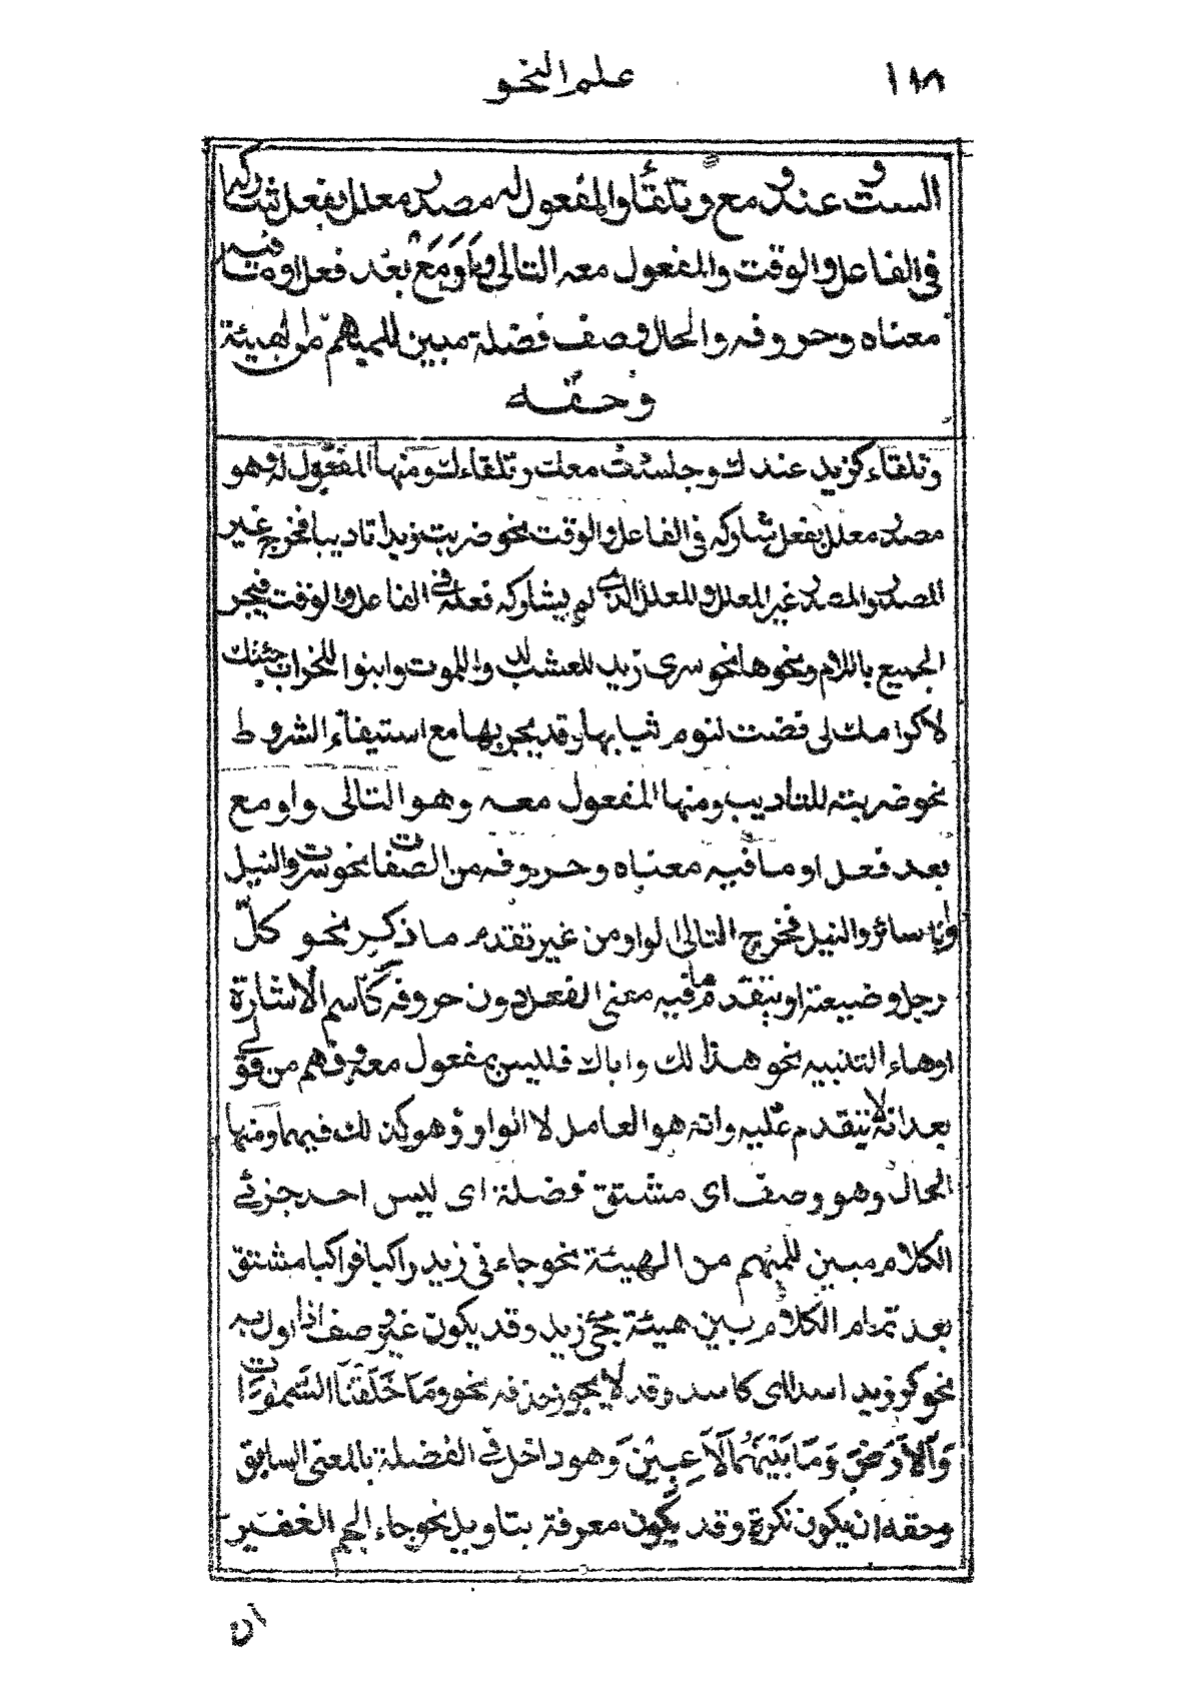 ١١٨ علم النحو
الست وعند ومع وتلقاء والمفعول له مصدر معلل بفعل شاركه
في الفاعل والوقت والمفعول معه التالي واو مع بعد فعل او ما فيه
معناه وحروفه والحال وصف فضلة مبين للمبهم من الهيئة
وحقه
وتلقاء كزيد عندك وجلست معك وتلقاءك ومنها المفعول له وهو
مصدر معلل بفعل شاركه في الفاعل والوقت نحو ضربت زيدا تاديبا فخرج غير
المصدر والمصدر غير المعلل والمعلل الذي لم يشاركه فعله في الفاعل والوقت فيجر
الجميع باللام ونحوها نحو سرى زيد للعشب لدوا للموت وابنوا للخراب جئتك
لاكرامك لي فضت لنوم ثيابها وقد يجر بها مع استيفاء الشروط
نحو ضربته للتاديب ومنها المفعول معه وهو التالي واو مع
بعد فعل او ما فيه معناه وحروفه من الصفات نحو سرت والنيل
وانا سائر والنيل فخرج التالي لواو من غير تقدم ما ذكر نحو كل
رجل وضيعته او بتقدم ما فيه معنى الفعل دون حروفه كاسم الاشارة
اوهاء التنبيه نحو هذا لك واباك فليس بمفعول معه وفهم من قولي
بعد انه لا يتقدم عليه وانه هو العامل لا الواو وهو كذلك فيهما ومنها
الحال وهو وصف اى مشتق فضلة اى ليس احد جزئي
الكلام مبين للمبهم من الهيئة نحو جاءني زيد راكبا فراكبا مشتق
بعد تمام الكلام بين هيئة مجئ زيد وقد يكون غير وصف اذا اول به
نحو كر زيد اسدا اى كاسد وقد لا يجوز حذفه نحو وَمَا خَلَقْنَا السَّمٰوَاتِ
وَالْاَرْضَ وَمَا بَيْنَهُمَا لَاعِبِيْنَ وهو داخل في الفضلة بالمعنى السابق
وحقه ان يكون نكرة وقد يكون معرفة بتاويل نحو جاء الجم الغفير
ان